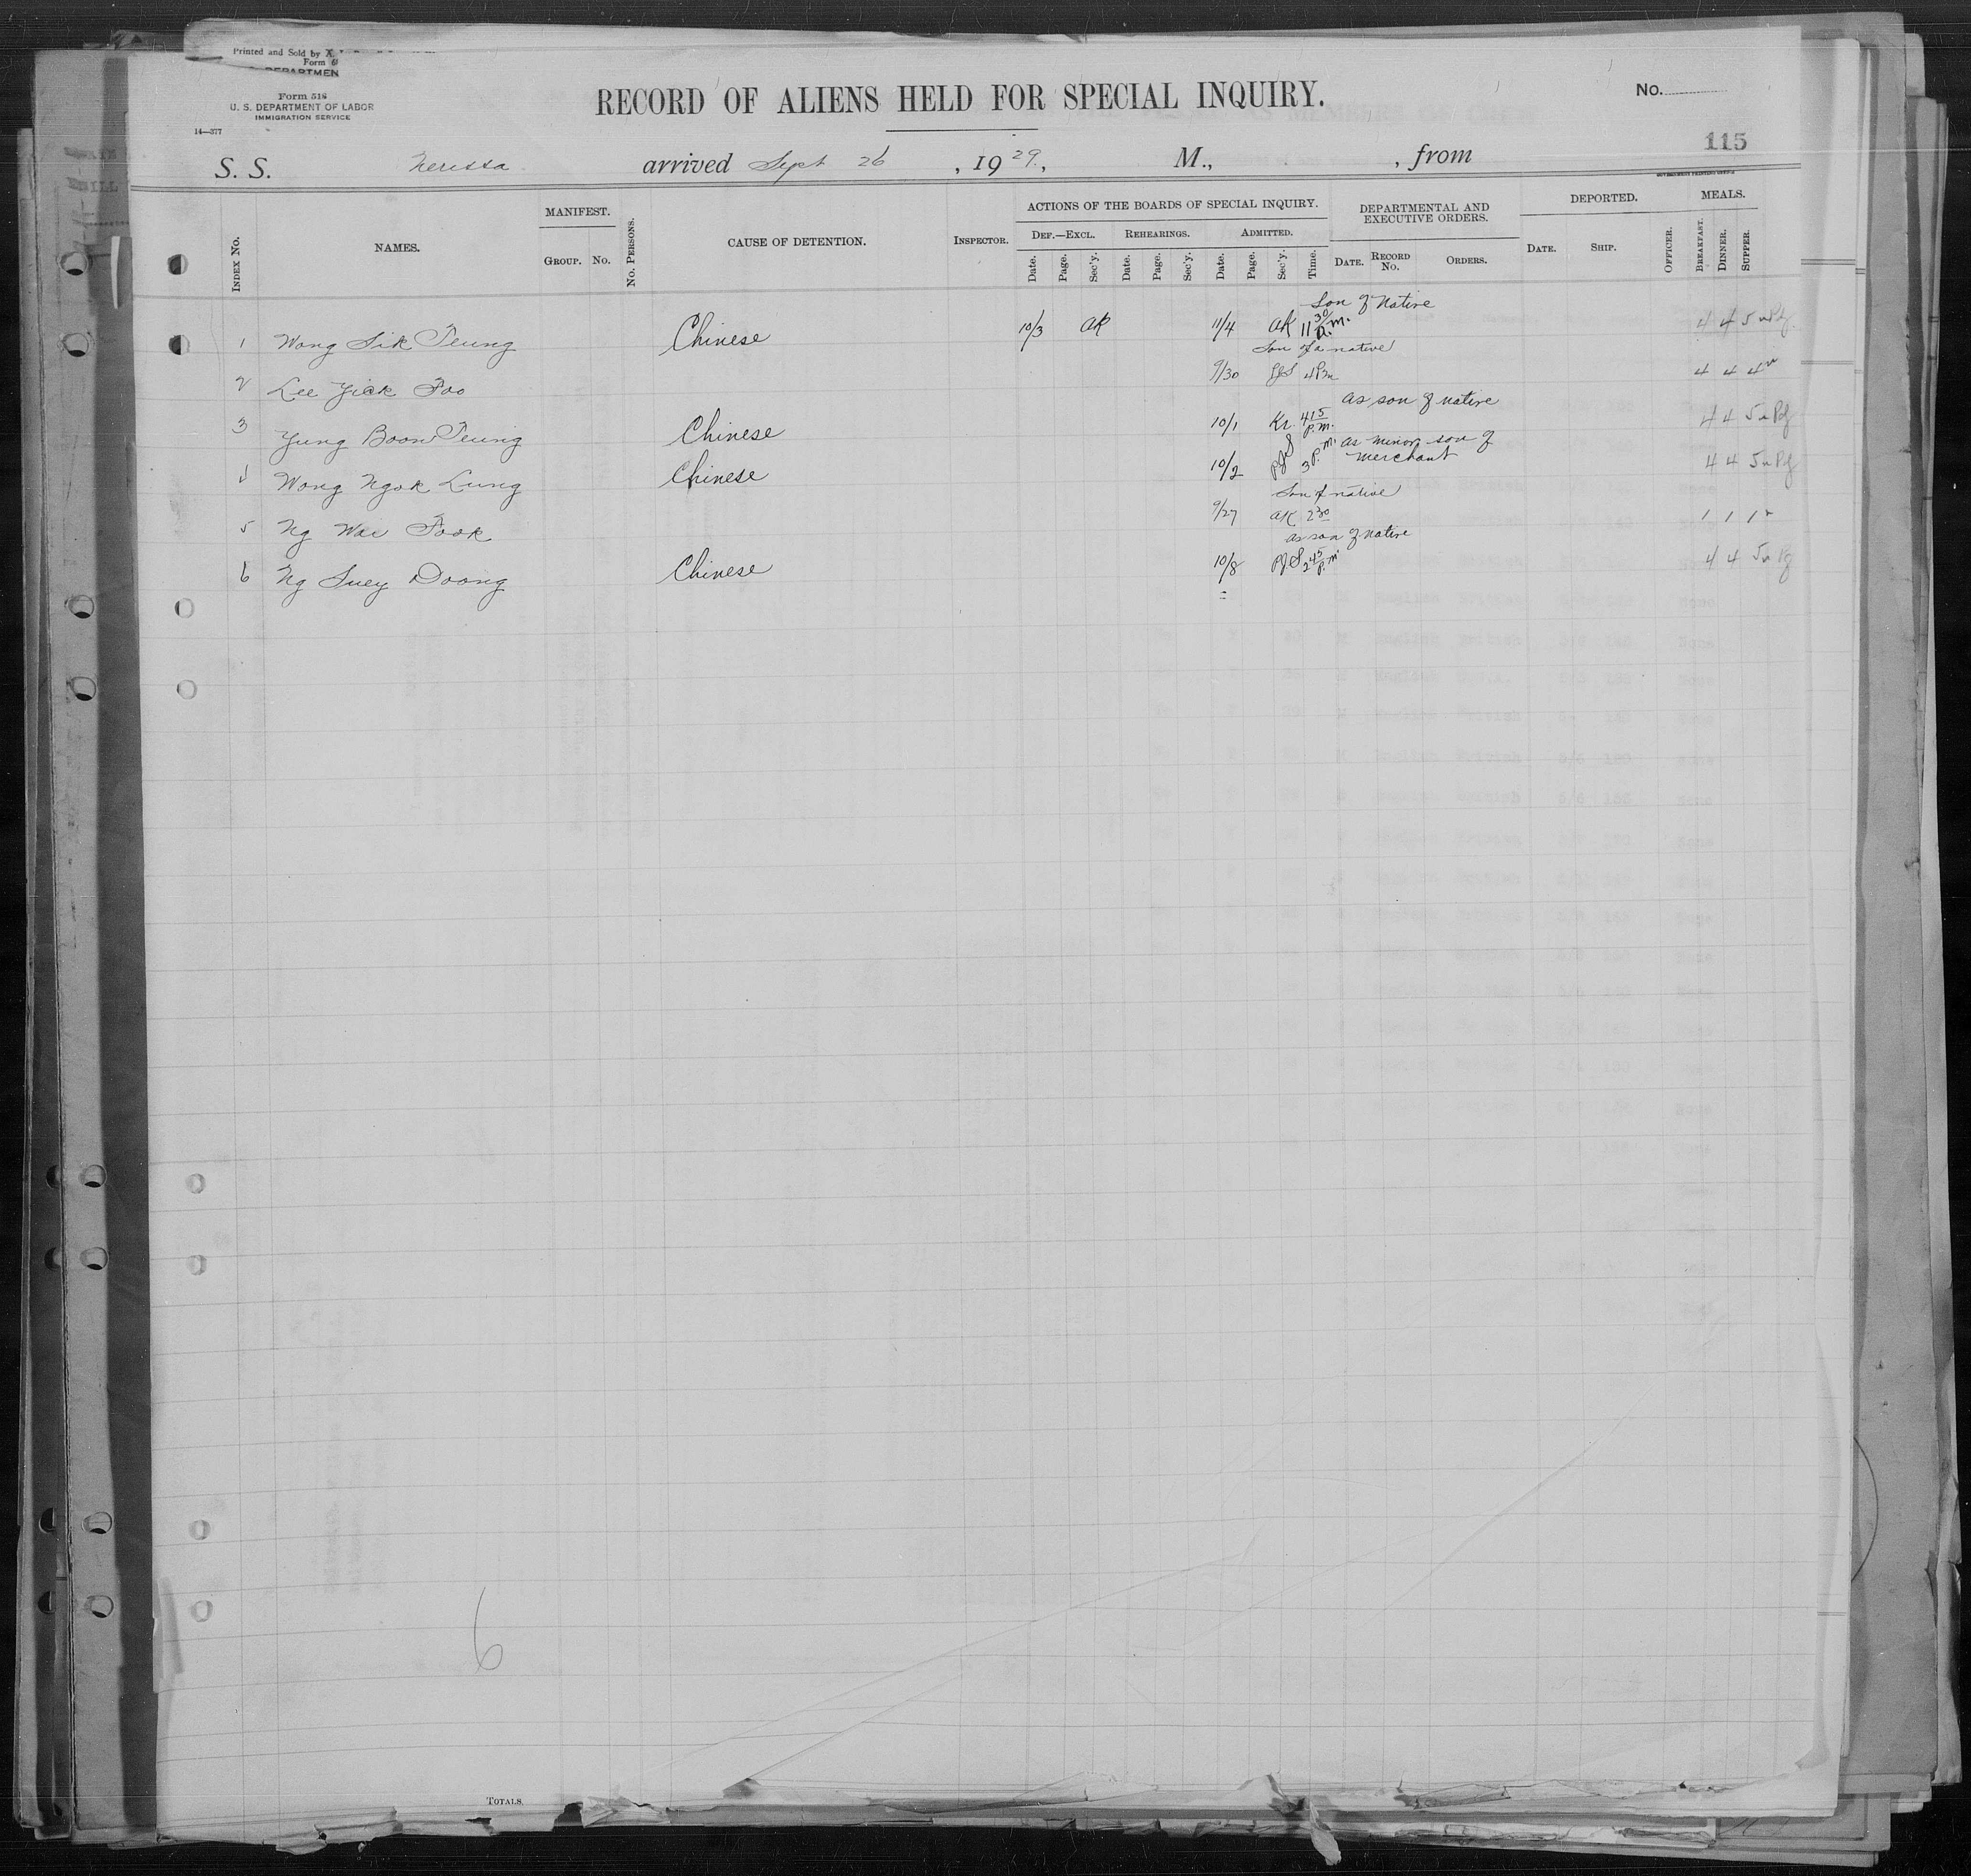 Printed and Sold by
Form
DEPARTMEN
Form 518
U. S. DEPARTMENT OF LABOR
IMMIGRATION SERVICE
14—377
RECORD OF ALIENS HELD FOR SPECIAL INQUIRY.
No.
115
S. S. Nerissa arrived Sept 26, 1929, M., , from
INDEX No.
NAMES.
MANIFEST.
GROUP. No.
No. PERSONS.
CAUSE OF DETENTION.
INSPECTOR.
ACTIONS OF THE BOARDS OF SPECIAL INQUIRY.
DEF.—EXCL. REHEARINGS. ADMITTED.
Date. Page. Sec'y. Date. Page. Sec'y. Date. Page. Sec'y. Time.
DEPARTMENTAL AND
EXECUTIVE ORDERS.
DATE. RECORD No. ORDERS.
DEPORTED.
DATE. SHIP. OFFICER.
MEALS.
BREAKFAST. DINNER. SUPPER.
Son of Native
1 Wong Sik Teung Chinese 10/3 AK 11/4 AK 11 30 a.m. 4 4 5
Son of a native
2 Lee Yick Foo 9/30 4 Pm 4 4 4
as son of native
3 Yung Boon Teung Chinese 10/1 Kr. 4 15 P.M. 4 4 5
as minor son of
merchant
4 Wong Ngok Lung Chinese 10/2 PJS 3 P.M. 4 4 5
Son of native
5 Ng Wai Fook 9/27 AK 2 30 1 1 1
as son of native
6 Ng Suey Doong Chinese 10/8 PJS 2 45 P.M. 4 4 5
6
TOTALS.